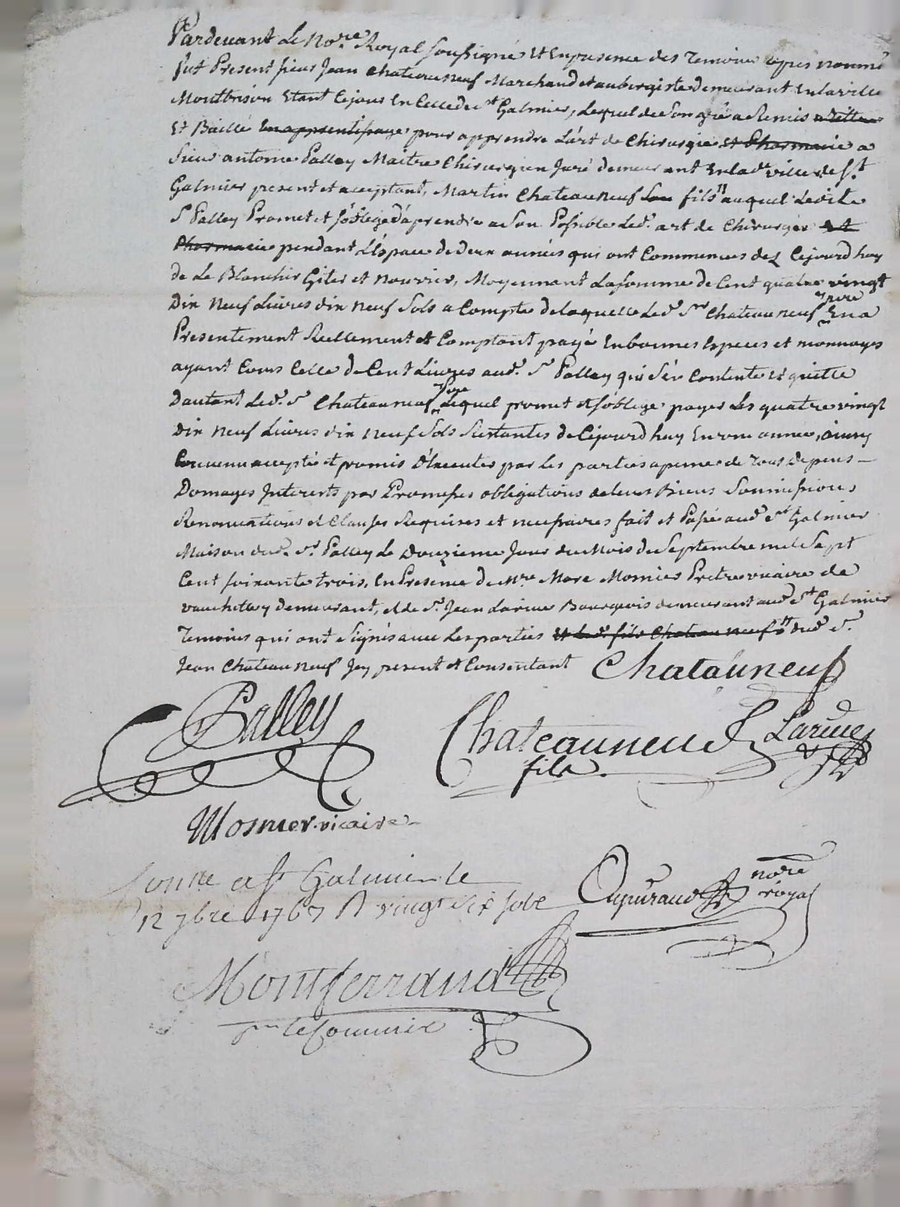 Pardevant Le No.re Royal soussigné et En presence des Temoins apres nommé
fut Present sieur Jean Chateauneuf Marchand et aubergiste demeurant En la ville
Montbrison Etant Cejour En Celle de s.t Galmier, Lequel de son gré a Remis
Et Baillé En apprentissage pour apprendre L'art de Chirurgie et Pharmacie a
Sieur antoine Palley Maitre Chirurgien Juré demeurant En lad.e ville de s.t
Galmier present et acceptant, Martin Chateauneuf son fils auquel Ledit
S.r Palley Promet et s'oblige d'aprendre a son Possible Led. art de Chirurgie et
Pharmacie pendant L'Espace de deux années qui ont Commencés dez Cejourd'huy
de Le Blanchir Giter et nourrir, Moyennant La somme de Cent quatre vingt
Dix Neuf Livres dix neuf Sols a Compte de laquelle Led. S.r Chateauneuf pere En a
Presentement Reellement et Comptant payé En bonnes Especes et monnoyes
ayant Cours Celle de Cent Livres aud. S.r Palley qui s'en Contente et quitte
Dautant Led. S.r Chateauneuf pere Lequel promet et s'oblige payer Les quatre vingt
Dix Neuf Livres dix neuf Sols Restantes de Cejourd'huy En une année, ainsy
Convenu accepté et promis d'Executer par les parties a peine de Tous depens
Domages Interets par Promesses obligations de leurs Biens Soumissions
Renonciations et Clauses Requises et necessaires fait et Passé aud. s.t Galmier
Maison dud. S.r Palley Le Douzieme Jour du Mois de Septembre mil Sept
Cent soixante trois, En Presence de M.re Mosnier Pretre vicaire de
demeurant, et de S.r Jean Larue Bourgeois demeurant aud. s.t Galmier
Temoins qui ont signés avec Les parties et Led. fils Chateauneuf dud. S.r
Jean Chateauneuf Icy present et Consentant Chatauneuf
Palley Chateauneuf Larue
fils
Mosnier vicaire
a s.t Galmier le
12 7bre 1763 R vingt six sols
nore royal
Montferrand
pour le Commis